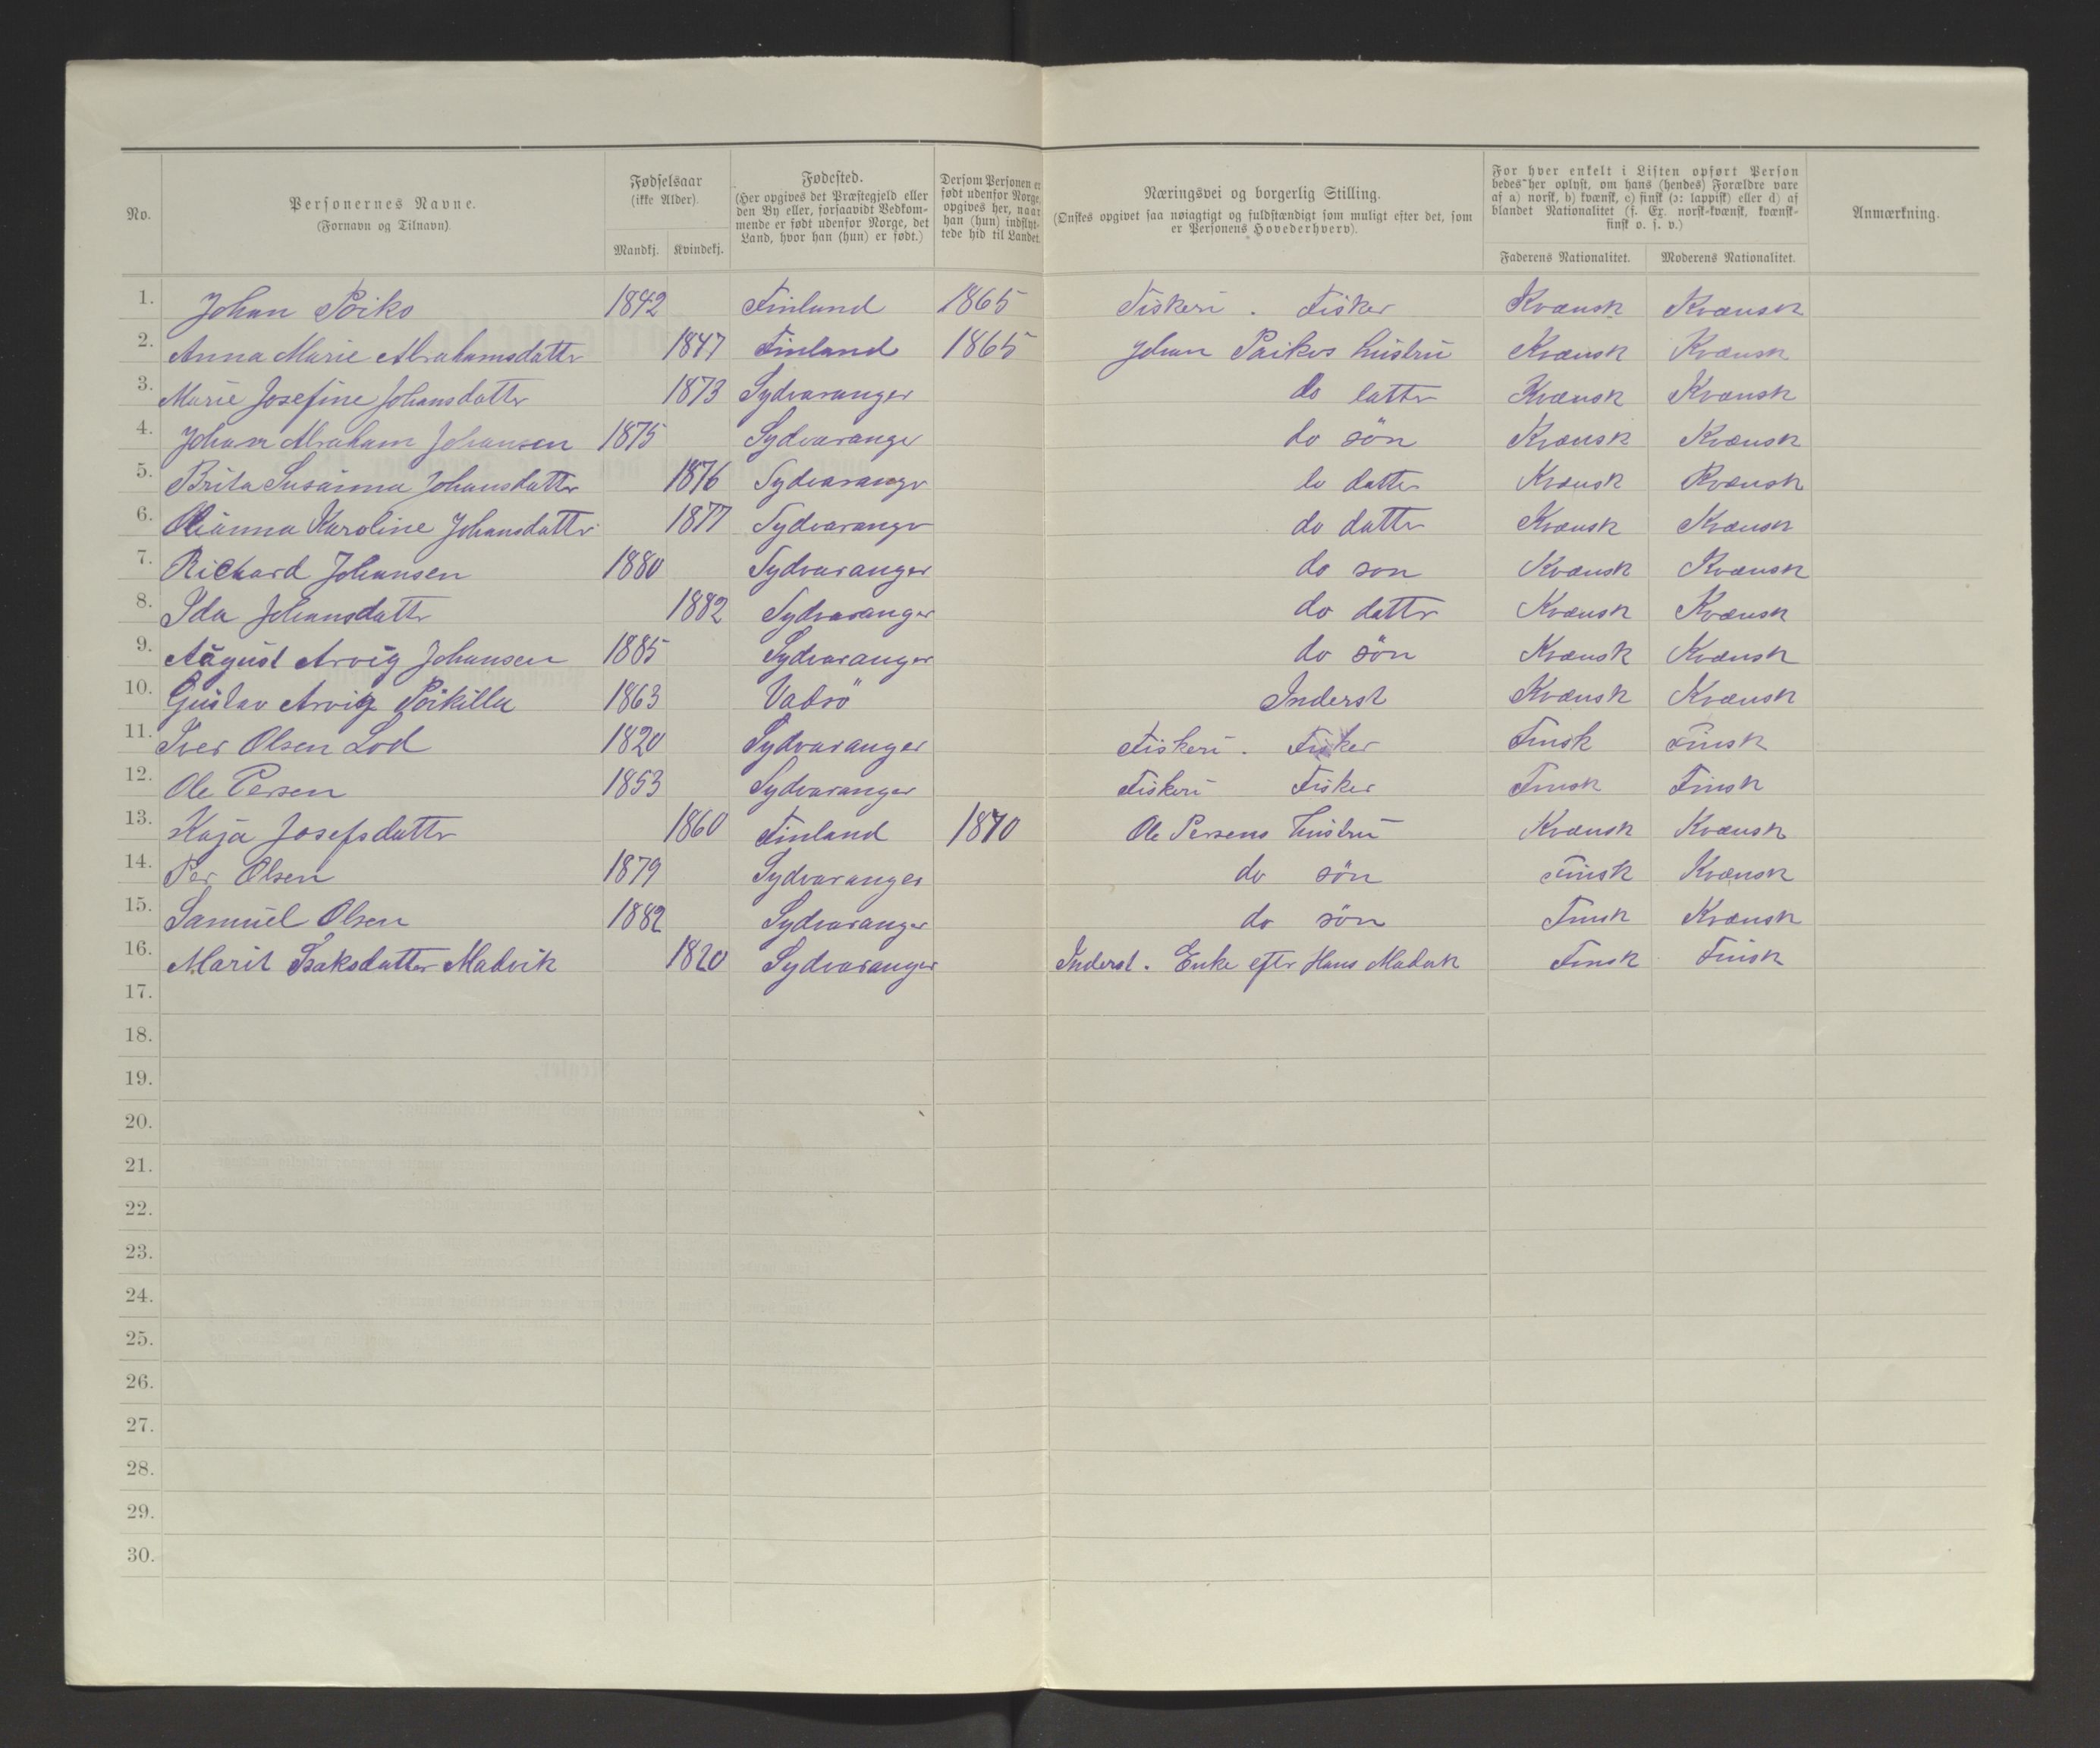 No.
Personernes Navne.
(Fornavn og Tilnavn).
Fødselsaar
(ikke Alder).
Mandkj. Kvindekj.
Fødested.
(Her opgives det Præstegjeld eller
den By eller, forsaavidt Vedkom-
mende er født udenfor Norge, det
Land, hvor han (hun) er født.)
Dersom Personen er
født udenfor Norge,
opgives her, naar
han (hun) indflyt-
tede hid til Landet.
Næringsvei og borgerlig Stilling.
(Ønskes opgivet saa nøiagtigt og fuldstændigt som muligt efter det, som
er Personens Hovederhverv).
For hver enkelt i Listen opført Person
bedes her oplyst, om hans (hendes) Forældre vare
af a) norsk, b) kvænsk, c) finsk (ɔ: lappisk) eller d) af
blandet Nationalitet (f. Ex. norsk-kvænsk, kvænsk-
finsk o. s. v.)
Faderens Nationalitet. Moderens Nationalitet.
Anmærkning.
1. Johan Poiko 1842 Finland 1865 Fiskeri . Fisker Kvænsk Kvænsk
2. Anna Marie Abrahamsdatter 1847 Finland 1865 Johan Poikos hustru Kvænsk Kvænsk
3. Marie Josefine Johansdatter 1873 Sydvaranger do datter Kvænsk Kvænsk
4. Johan Abraham Johansen 1875 Sydvaranger do sön Kvænsk Kvænsk
5. Brita Susanna Johansdatter 1876 Sydvaranger do datter Kvænsk Kvænsk
6. Karoline Johansdatter 1877 Sydvaranger do datter Kvænsk Kvænsk
7. Richard Johansen 1880 Sydvaranger do son Kvænsk Kvænsk
8. Ida Johansdatter 1882 Sydvaranger do datter Kvænsk Kvænsk
9. August Arvig Johansen 1885 Sydvaranger do sön Kvænsk Kvænsk
10. Gustav Arvig Poikilla 1863 Vadsö Inderst Kvænsk Kvænsk
11. Iver Olsen Lod 1820 Sydvaranger Fiskeri . Fisker Finsk Finsk
12. Ole Persen 1853 Sydvaranger Fiskeri Fisker Finsk Finsk
13. Kaja Josefsdatter 1860 Finland 1870 Ole Persens hustru Kvænsk Kvænsk
14. Per Olsen 1879 Sydvaranger do sön Finsk Kvænsk
15. Samuel Olsen 1882 Sydvaranger do sön Finsk Kvænsk
16. Marit Isaksdatter Madvik 1820 Sydvaranger Inderst . Enke efter Hans Madvik Finsk Finsk
17.
18.
19.
20.
21.
22.
23.
24.
25.
26.
27.
28.
29.
30.